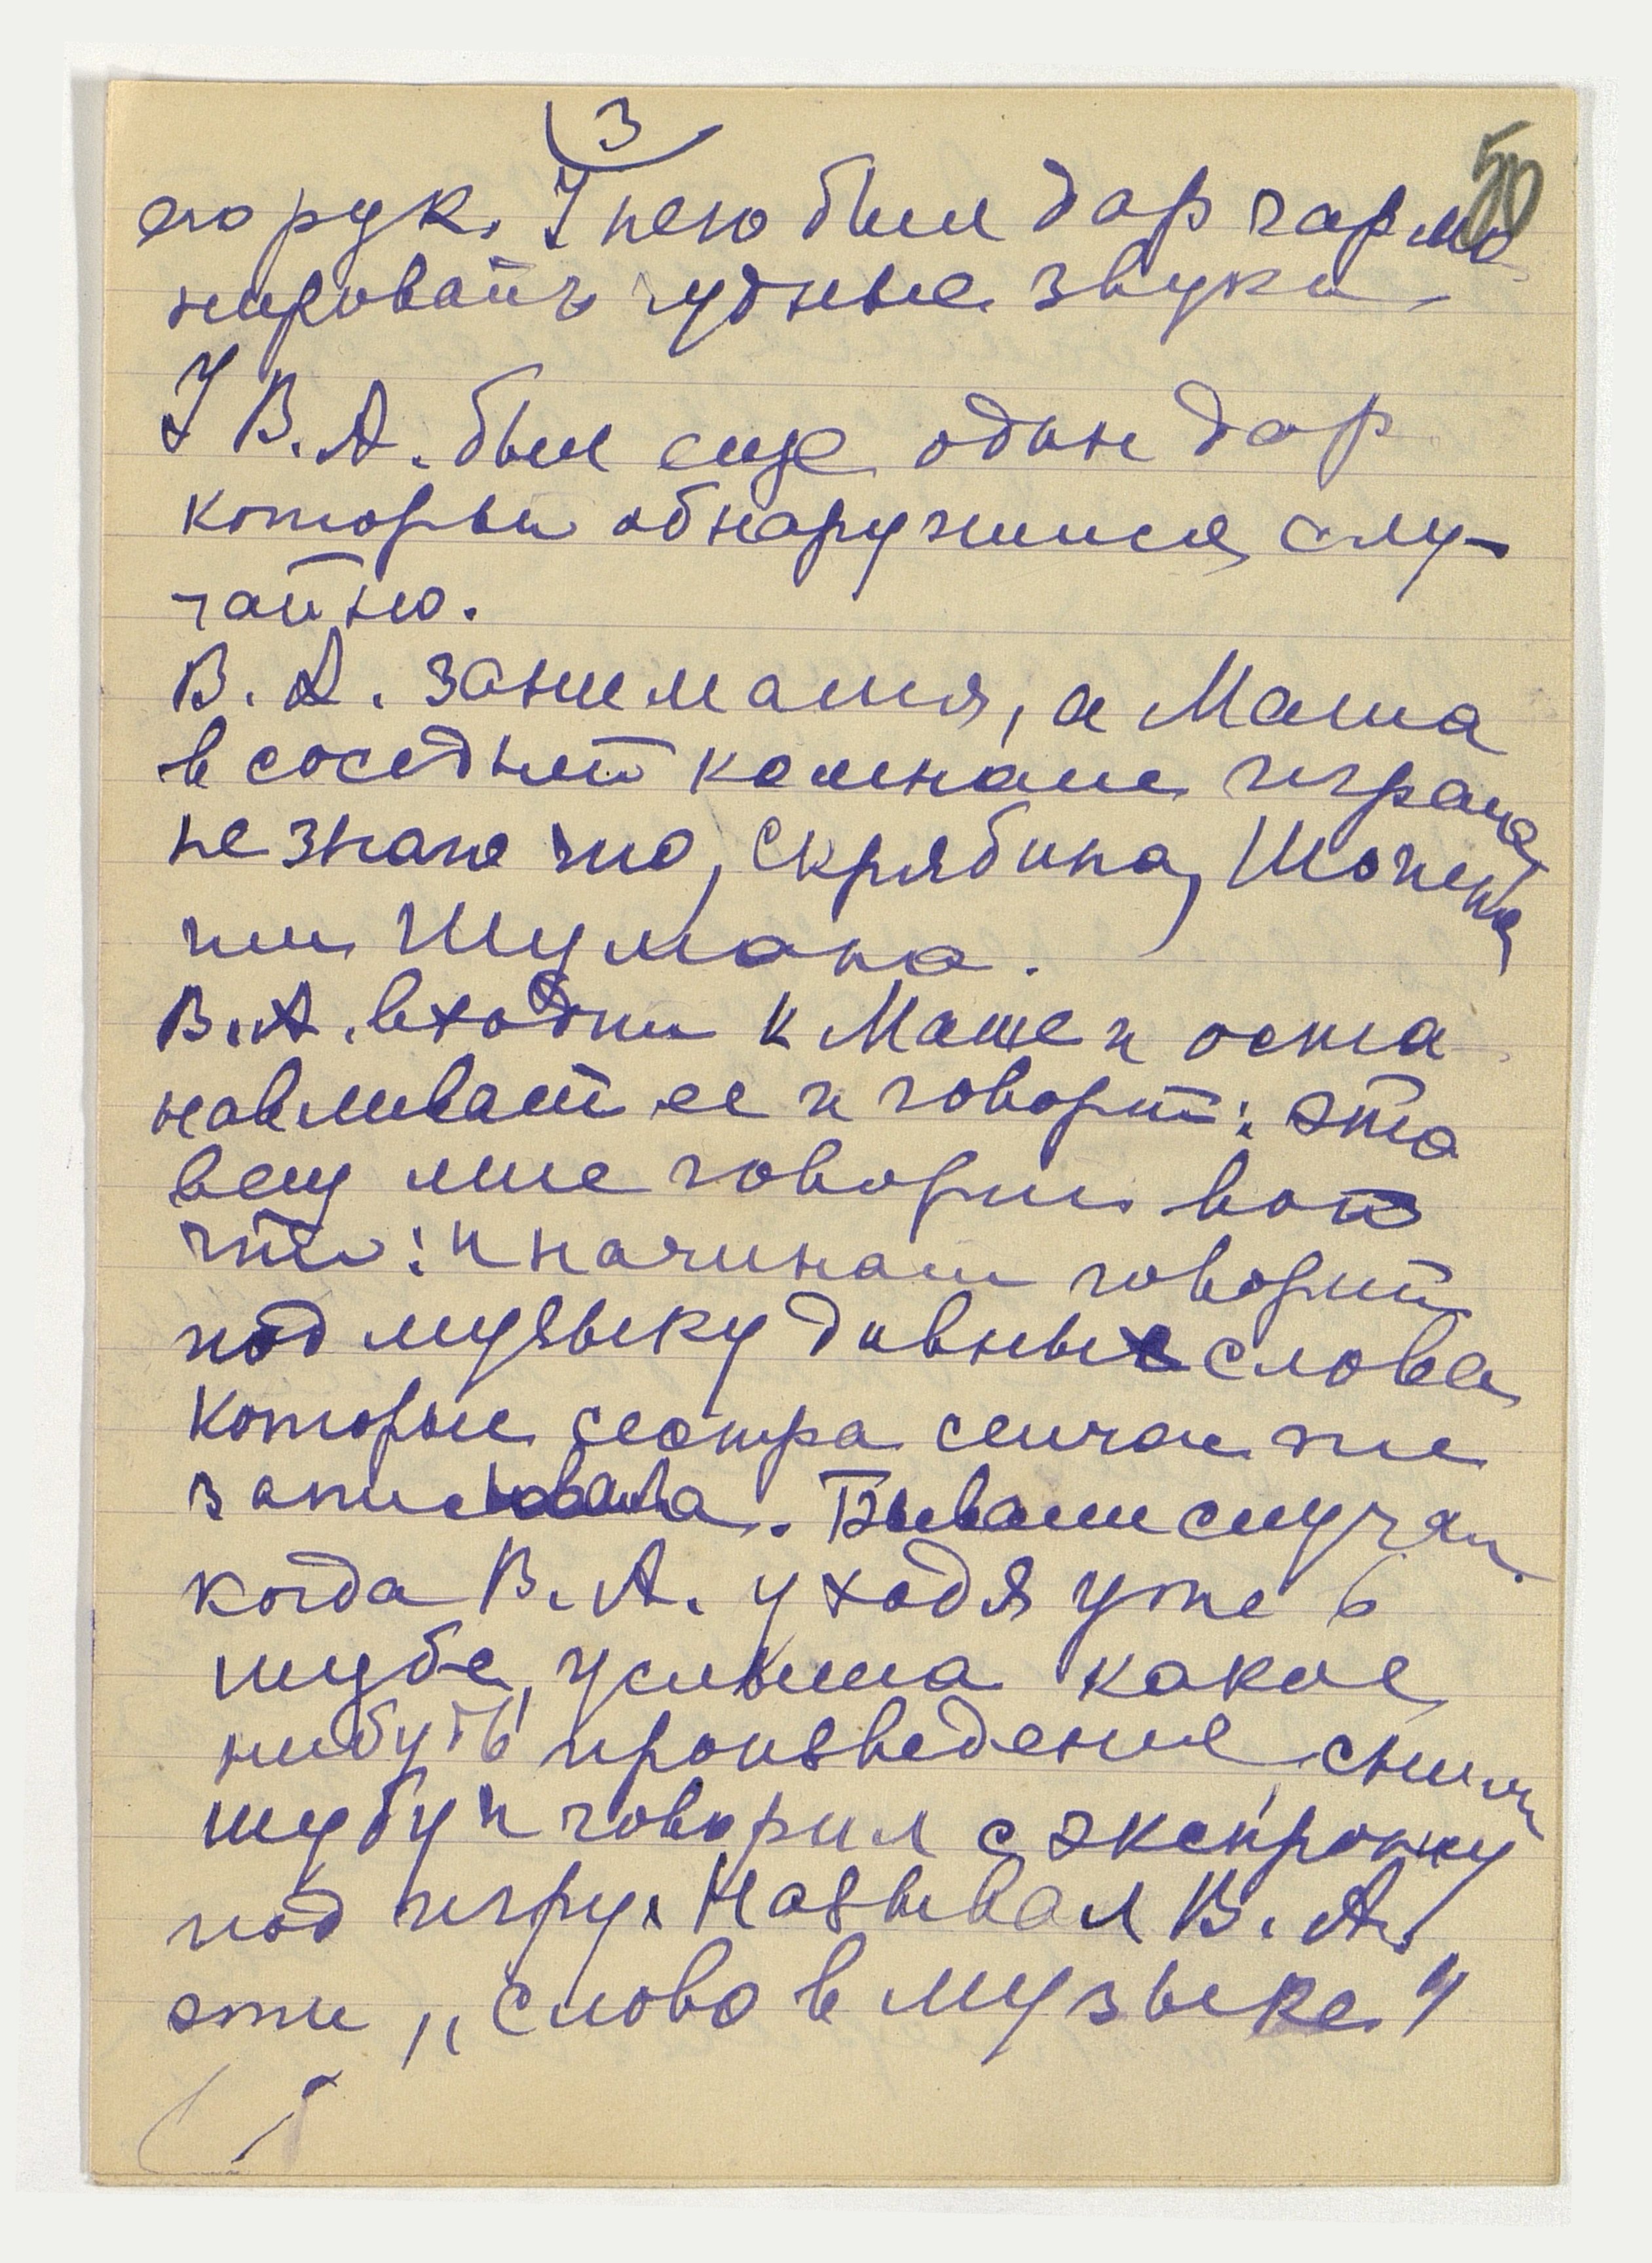 3
50
его рук. У него был дар гармо
нировать чудные звуки.
У В. А. был еще один дар
который обнаружился слу-
чайно.
В. А. занимался, а Маша
в соседней комнате играла
не знаю что, Скрябина, Шопена
или Шумана.
В. А. входит к Маше и оста
навливает ее и говорит: эта
вещ мне говорит вот
что: и начинает говорить
под музыку дивные слова
которые сестра сейчас же
записывала. Бывали случаи
когда В. А. уходя уже в
шубе, услыша какое
нибуть произведение снимал
шубу и говорил с экспромту
под игру. Называл В. А.
эти „слово в музыке"